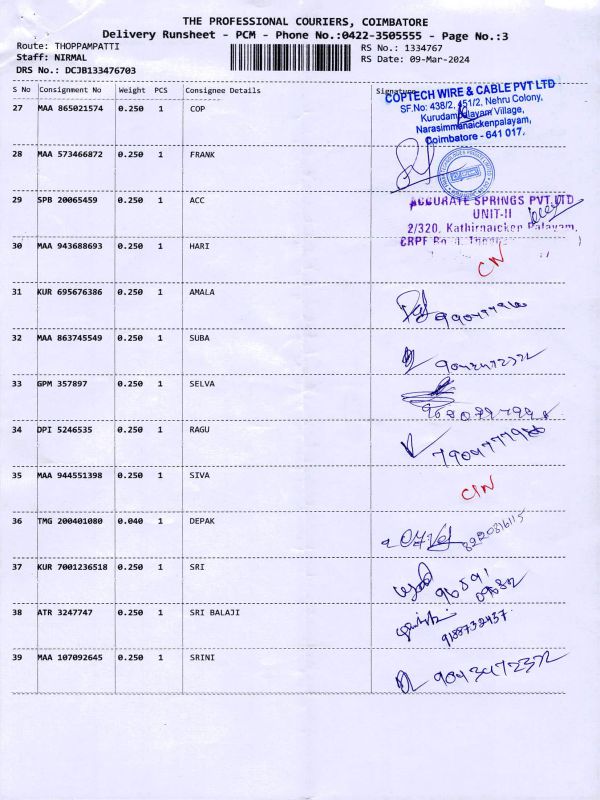 THE PROFESSIONAL COURIERS, COIMBATORE
Delivery Runsheet - PCM - Phone No.:0422-3505555 - Page No.:3
Route: THOPPAMPATTI
Staff: NIRMAL
DRS No.: DCJB133476703
RS No.: 1334767
RS Date: 09-Mar-2024
S No Consignment No Weight PCS Consignee Details Signature
27 MAA 865021574 0.250 1 COP
COPTECH WIRE & CABLE PVT LTD
SF.No: 438/2, 451/2, Nehru Colony,
Kurudampalayam Village,
Narasimmanaickenpalayam,
Coimbatore - 641 017.
28 MAA 573466872 0.250 1 FRANK
29 SPB 20065459 0.250 1 ACC
ACCURATE SPRINGS PVT.LTD
UNIT-II
2/320, Kathirnaicken Palayam,
CRPF
30 MAA 943688693 0.250 1 HARI
31 KUR 695676386 0.250 1 AMALA
32 MAA 863745549 0.250 1 SUBA
33 GPM 357897 0.250 1 SELVA
34 DPI 5246535 0.250 1 RAGU
35 MAA 944551398 0.250 1 SIVA
36 TMG 200401080 0.040 1 DEPAK
37 KUR 7001236518 0.250 1 SRI
38 ATR 3247747 0.250 1 SRI BALAJI
9188738437
39 MAA 107092645 0.250 1 SRINI